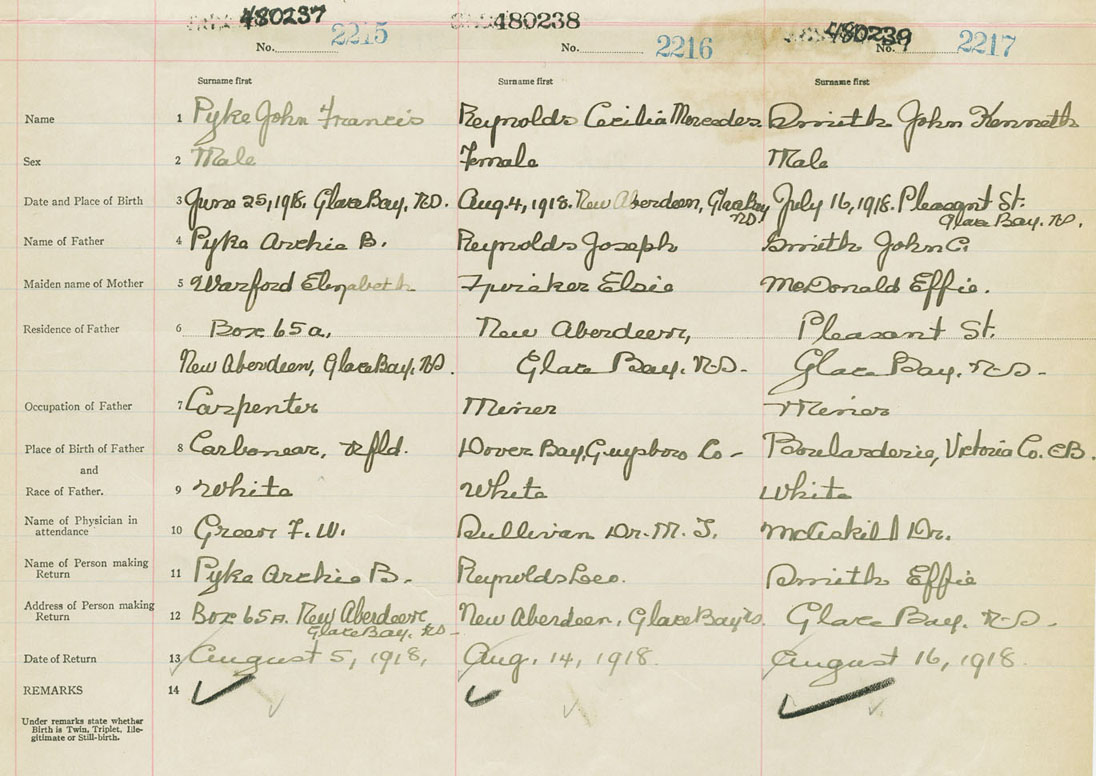 480237 480238 480239
No. 2215 No. 2216 No. 2217
Surname first Surname first Surname first
Name 1 Pyke John Francis Reynolds Cecilia Mercedes Smith John Kenneth
Sex 2 Male Female Male
Date and Place of Birth 3 June 25, 1918. Glace Bay, N.S. Aug. 4, 1918. New Aberdeen, Glace Bay N.S. July 16, 1918. Pleasant St.
Glace Bay. N.S.
Name of Father 4 Pyke Archie B. Reynolds Joseph Smith John C.
Maiden name of Mother 5 Warford Elizabeth Elsie McDonald Effie.
Residence of Father 6 Box 65a, New Aberdeen, Pleasant St.
New Aberdeen, Glace Bay, N.S. Glace Bay. N.S. Glace Bay. N.S.
Occupation of Father 7 Carpenter Miner Miner
Place of Birth of Father 8 Carbonear, Nfld. Dover Bay, Guysboro Co Boularderie, Victoria Co. C.B.
and
Race of Father. 9 White White White
Name of Physician in
attendance 10 Green F. W. Sullivan Dr. M. T. McCaskill Dr.
Name of Person making
Return 11 Pyke Archie B. Reynolds Leo. Smith Effie
Address of Person making
Return 12 Box 65A. New Aberdeen New Aberdeen, Glace Bay N.S. Glace Bay. N.S.
Glace Bay. N.S.
Date of Return 13 August 5, 1918, Aug. 14, 1918. August 16, 1918.
REMARKS 14
Under remarks state whether
Birth is Twin, Triplet, Ille-
gitimate or Still-birth.